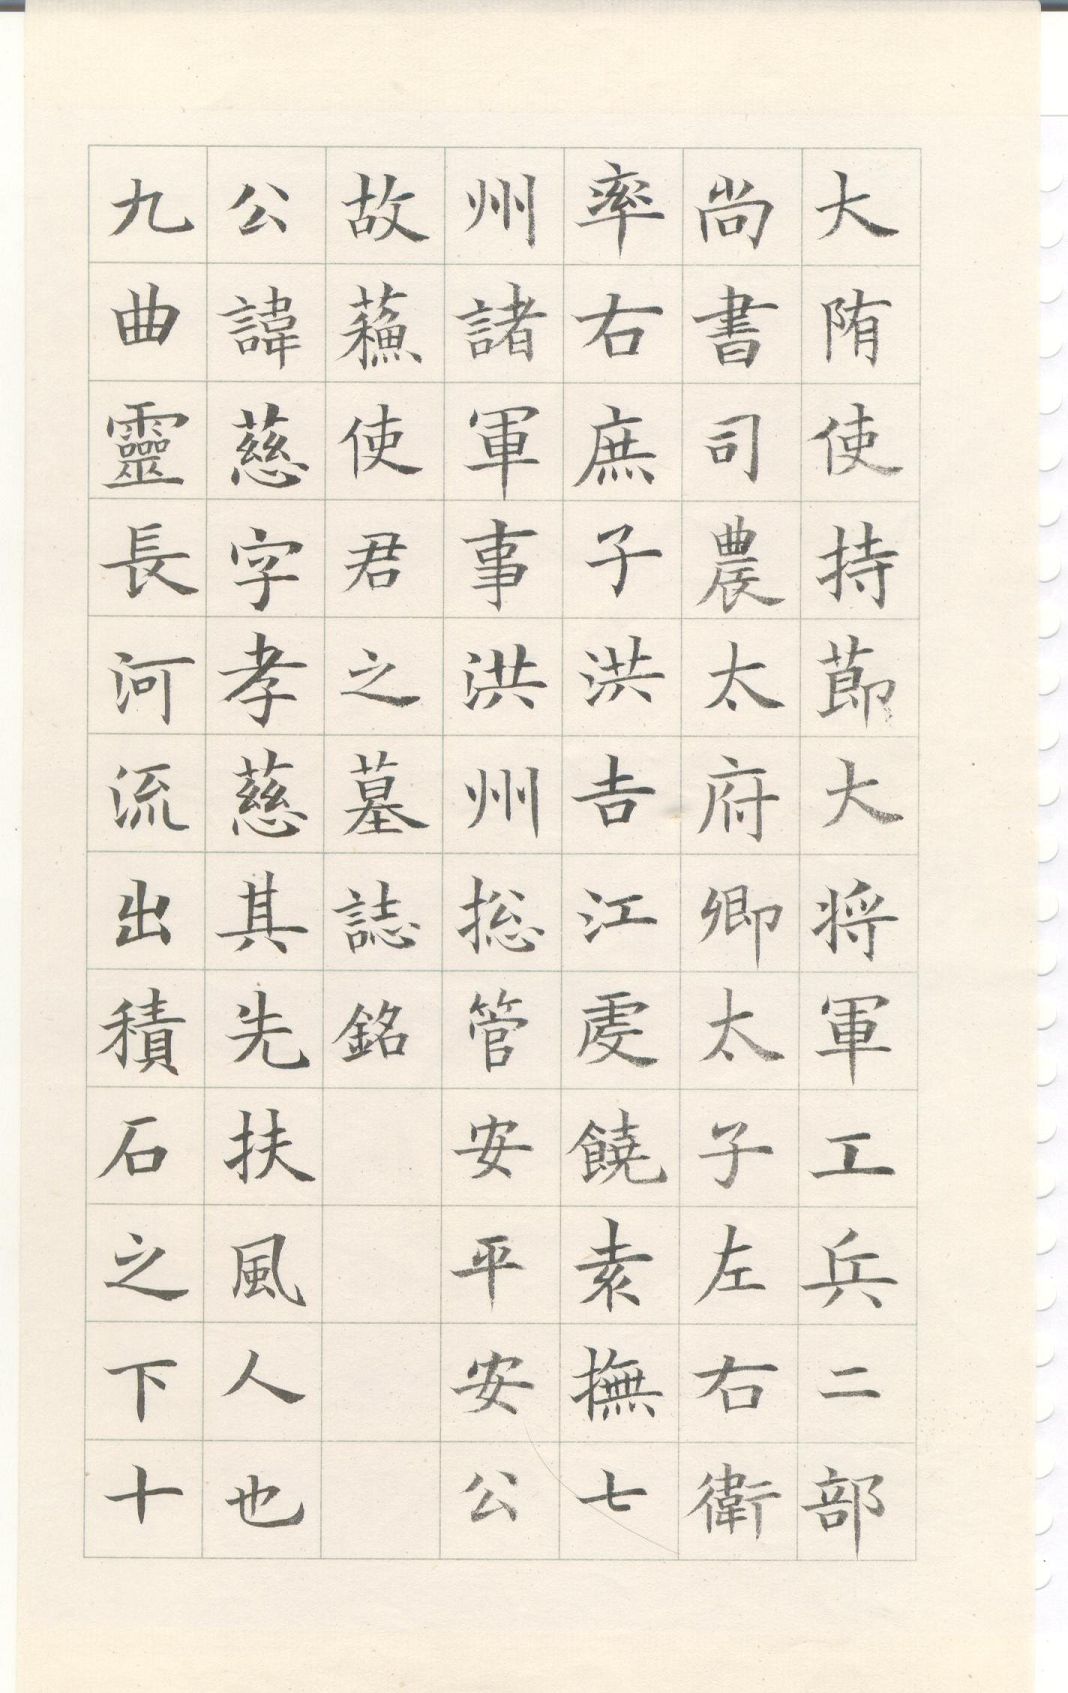 大隋使持節大将軍工兵二部
尚書司農太府卿太子左右衛
率右庶子洪吉江虔饒袁撫七
州諸軍事洪州捴管安平安公
故蘓使君之墓誌銘
公諱慈字孝慈其先扶風人也
九曲靈長河流出積石之下十